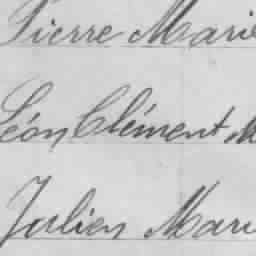 Pierre Marie
Léon Clément M
Julien Mari